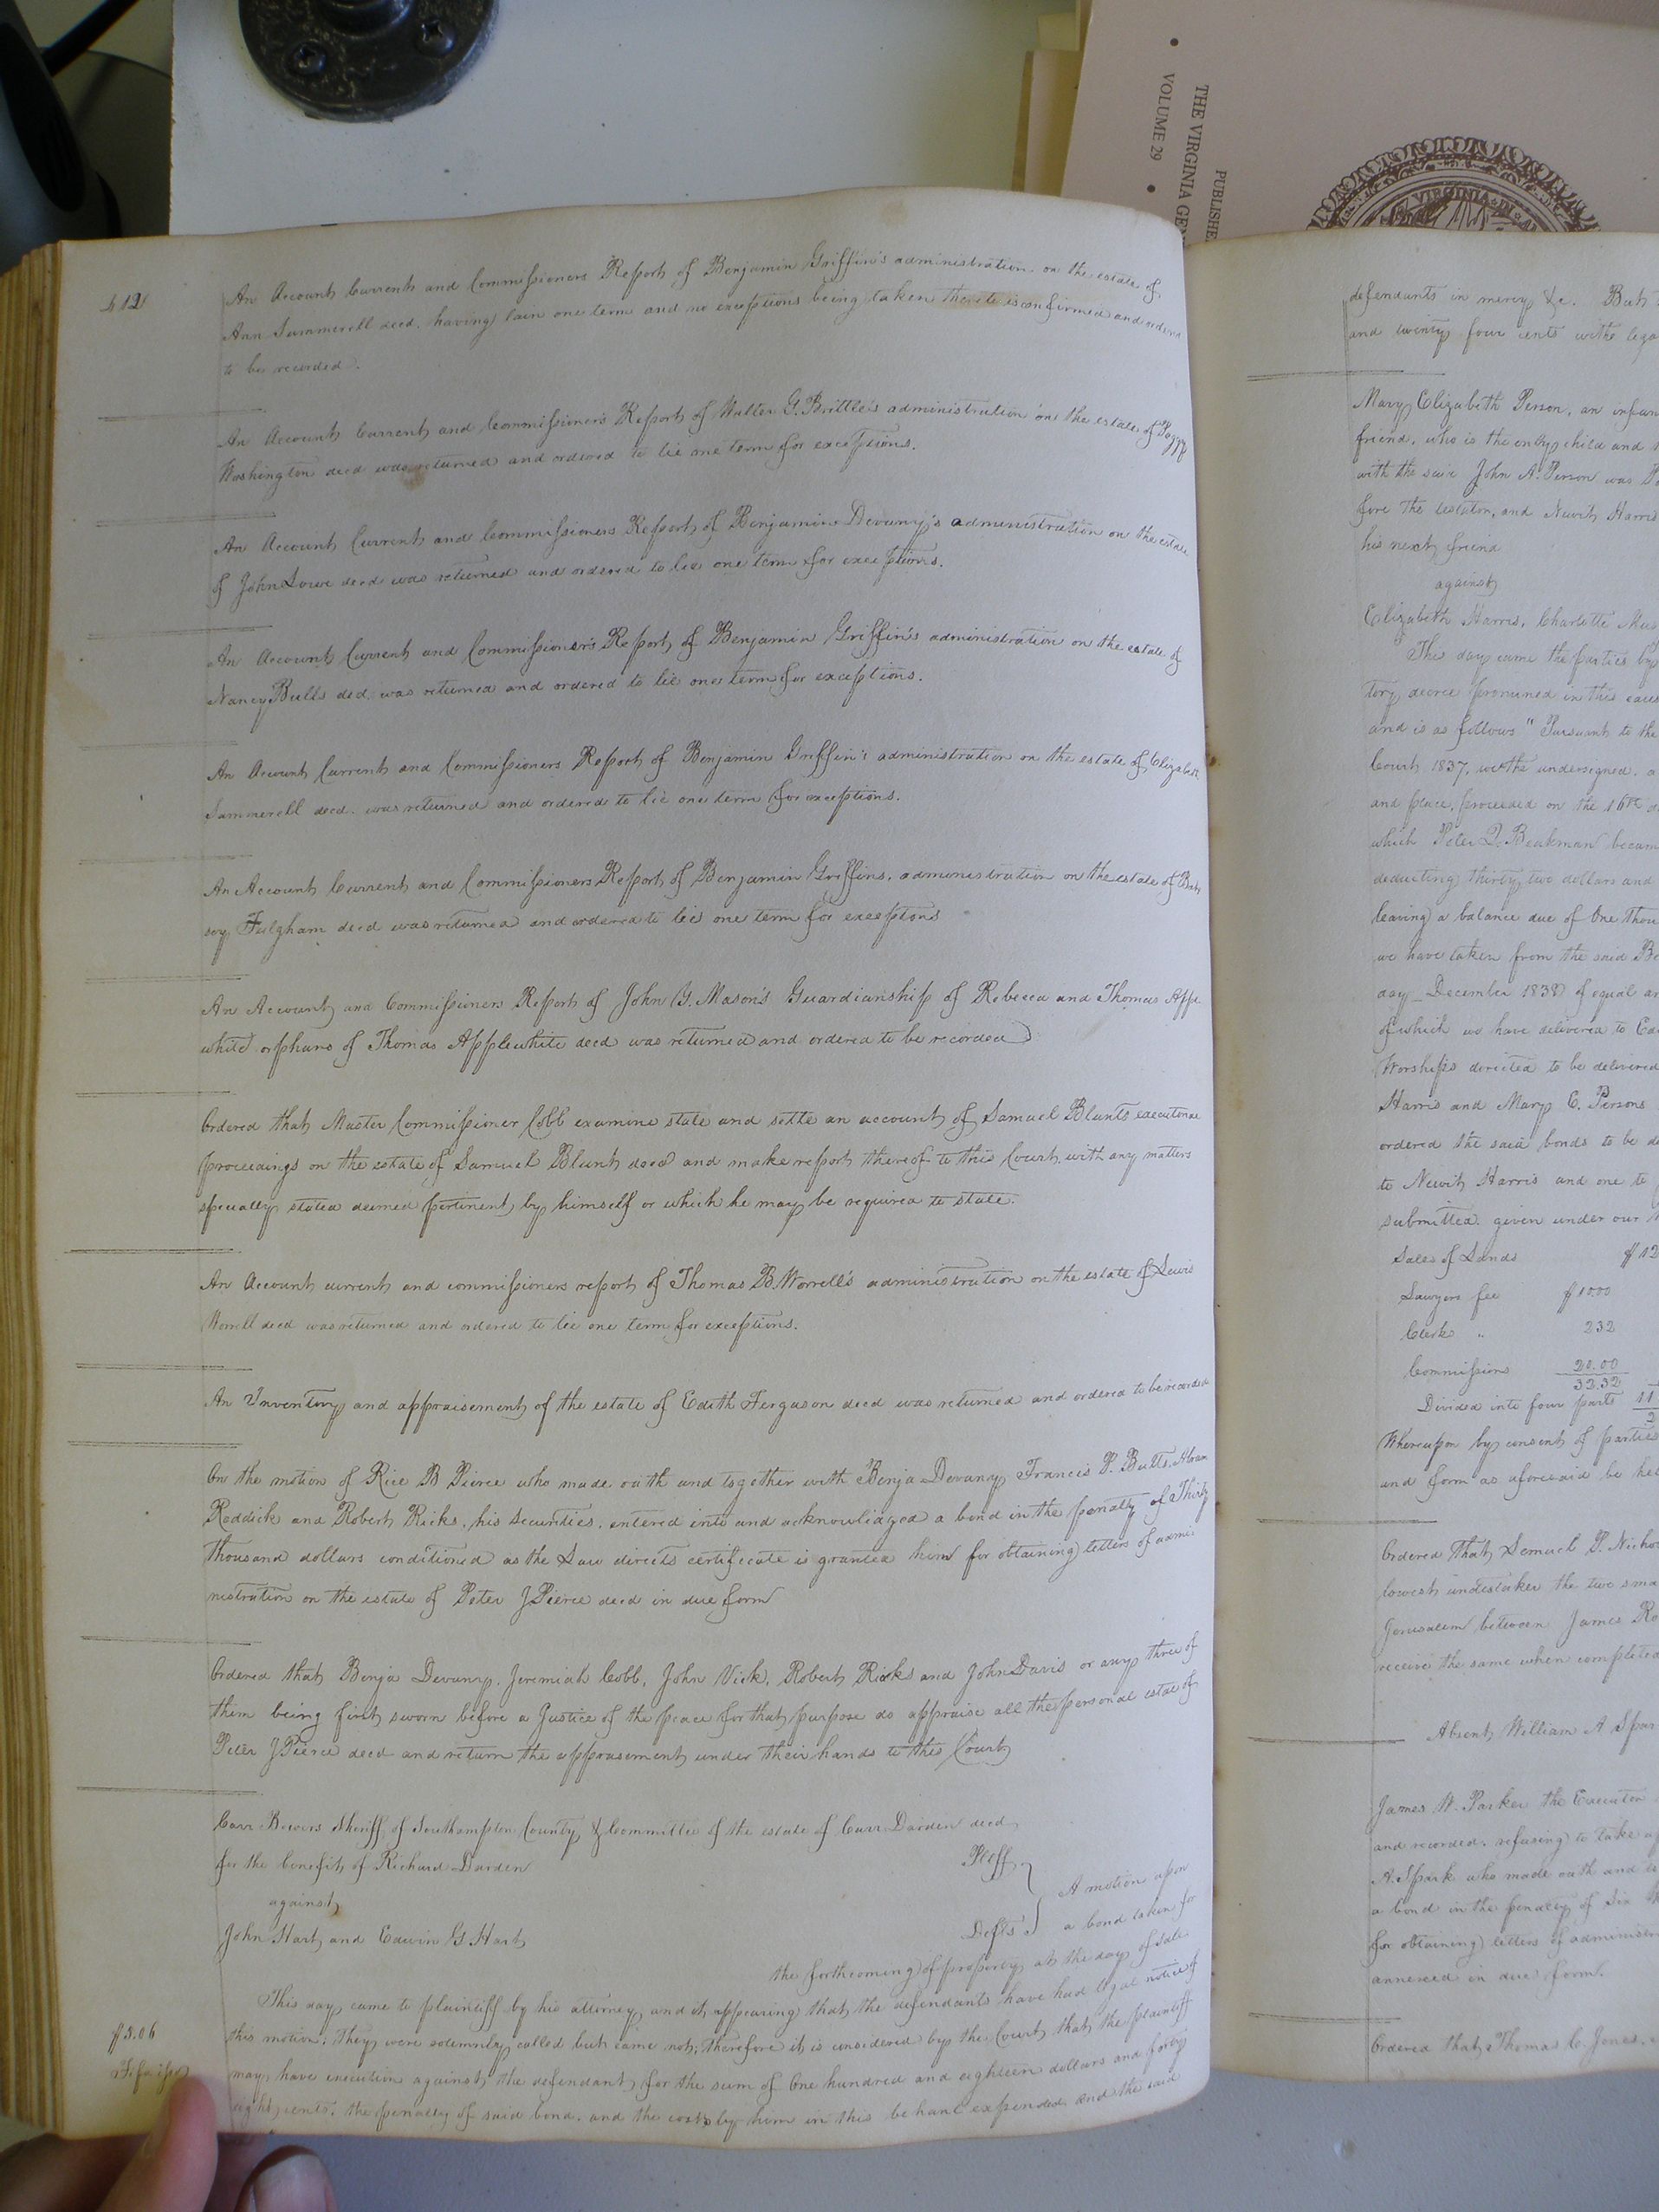 THE VIRGINIA GEN
VOLUME 29
PUBLISHE
VIRGINIA
412
An Account Current and Commissioners Report of Benjamin Griffin's administration on the estate of
Ann Summerell deed. having lain one term and no exceptions being taken thereto is confirmed and ordered
to be recorded.
An Account Current and Commissioner's Report of Walter G. Brittle's administration on the estate of Peggy
Washington deed was returned and ordered to lie one term for exceptions.
An Account Current and Commissioners Report of Benjamin Devany's administration on the estate
of John Lowe deed was returned and ordered to lie one term for exceptions.
An Account Current and Commissioner's Report of Benjamin Griffin's administration on the estate of
Nancy Bulls ded. was returned and ordered to lie one term for exceptions.
An Account Current and Commissioners Report of Benjamin Griffin's administration on the estate of Elizabeth
Summerell deed. was returned and ordered to lie one term for exceptions.
An Account Current and Commissioners Report of Benjamin Griffins, administration on the estate of Bet
sey Fulgham deed was returned and ordered to lie one term for exceptions
An Account and Commissioners Report of John Y. Mason's Guardianship of Rebecca and Thomas Apple
white orphans of Thomas Applewhite deed was returned and ordered to be recorded
Ordered that Master Commissioner Cobb examine state and settle an account of Samuel Blunts
proceedings on the estate of Samuel Blunt deed and make report thereof to this Court, with any matters
specially stated deemed pertinent by himself or which he may be required to state.
An Account current and commissioners report of Thomas B. Worrell's administration on the estate of Lewis
Worrell deed was returned and ordered to lie one term for exceptions.
An Inventory and appraisement of the estate of Edith Ferguson deed was returned and ordered to be recorded
On the motion of Rice B Pierce who made oath and together with Benja Devany, Francis P. Butts,
Reddick and Robert Ricks, his securities, entered into and acknowledged a bond in the penalty of Thirty
thousand dollars conditioned as the Law directs certificate is granted him for obtaining letters of admi
nistration on the estate of Peter J Pierce deed in due form
Ordered that Benja Devany, Jeremiah Cobb, John Vick, Robert Ricks and John Davis or any three of
them being first sworn before a Justice of the peace for that purpose do appraise all the personal estate of
Peter J Pierce deed and return the appraisement under their hands to this Court
Carr Bowers Sheriff of Southampton County & Committee of the estate of Carr Darden deed
for the benefit of Richard Darden Pltff
against A motion upon
John Hart and Edwin G Hart Defts a bond taken for
the forthcoming of property at the day of sale
This day came to plaintiff by his attorney and it appearing that the defendants have had legal notice of
this motion; They were solemnly called but came not; therefore it is considered by the Court that the plaintiff
$5.06
may have execution against the defendant for the sum of One hundred and eighteen dollars and forty
eight cents. the penalty of said bond. and the costs by him in this behalf expended. and the said
defendants in mercy &c. But
and twenty four cents with lega
Mary Elizabeth Person, an infan
friend, who is the only child and
with the said John A. Person was
fore the testator, and Newit Harris
his next friend
against
Elizabeth Harris, Charlotte
This day came the parties by
tory decree pronuned in this caus
and is as follows "Pursuant to the
Court 1837, we the undersigned. a
and place, proceeded on the 16th
which Peter Beakman becam
deducting thirty two dollars and
leaving a balance due of One thou
we have taken from the said Be
day December 1838 of equal
of which we have delivered to Ed
Worships directed to be delivered
Harris and Mary E. Persons
ordered the said bonds to be de
to Newit Harris and one to
submitted. given under our
Sales of Lands $12
Lawyers fee $10.00
Clerks " 2.32
Commissions 20.00
32.32
Divided into four parts 11
Whereupon by consent of parties
and form as aforesaid be he
Ordered that Lemuel P. Nicho
lowest undertaker the two sma
Jerusalem between James Ro
receive the same when completed
Absent, William A Spar
James W. Parker the Executor
and recorded. refusing to take
A. Spark who made oath and
a bond in the penalty of Six
for obtaining letters of administr
annexed in due form.
Ordered that Thomas C. Jones,